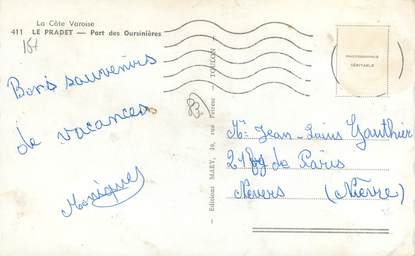 La Côte Varoise
411 LE PRADET — Port des Oursinières
Bons souvenirs
de vacances
Monique
83
— Editions MAR, rue — TOULON —
PHOTOGRAPHIE
VÉRITABLE
Mr Jean-Louis Gauthier
21 fg de Paris
Nevers (Nièvre)